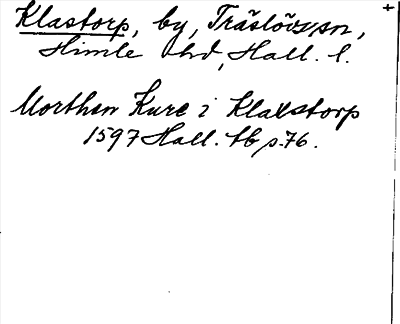 Klastorp, by, Träslövs sn,
Himle hd, Hall. l.
Morthen Kure i Klaxstorp
1597 Hall. tb p. 76.